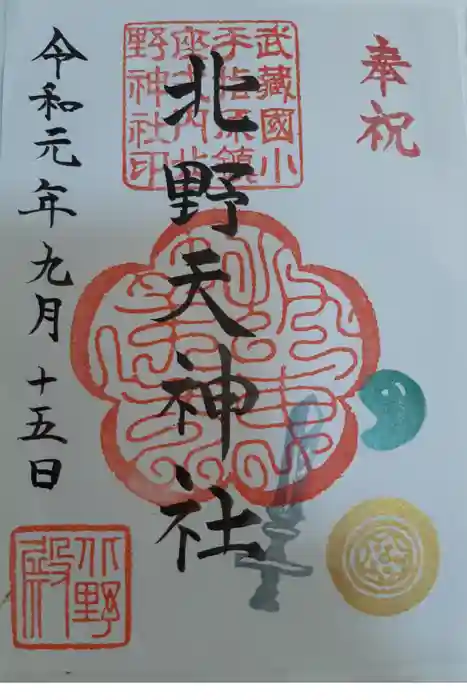 奉祝
武藏國小
手指原鎮
座式内北
野神社印
北野天神社
令和元年九月十五日
北野
殿